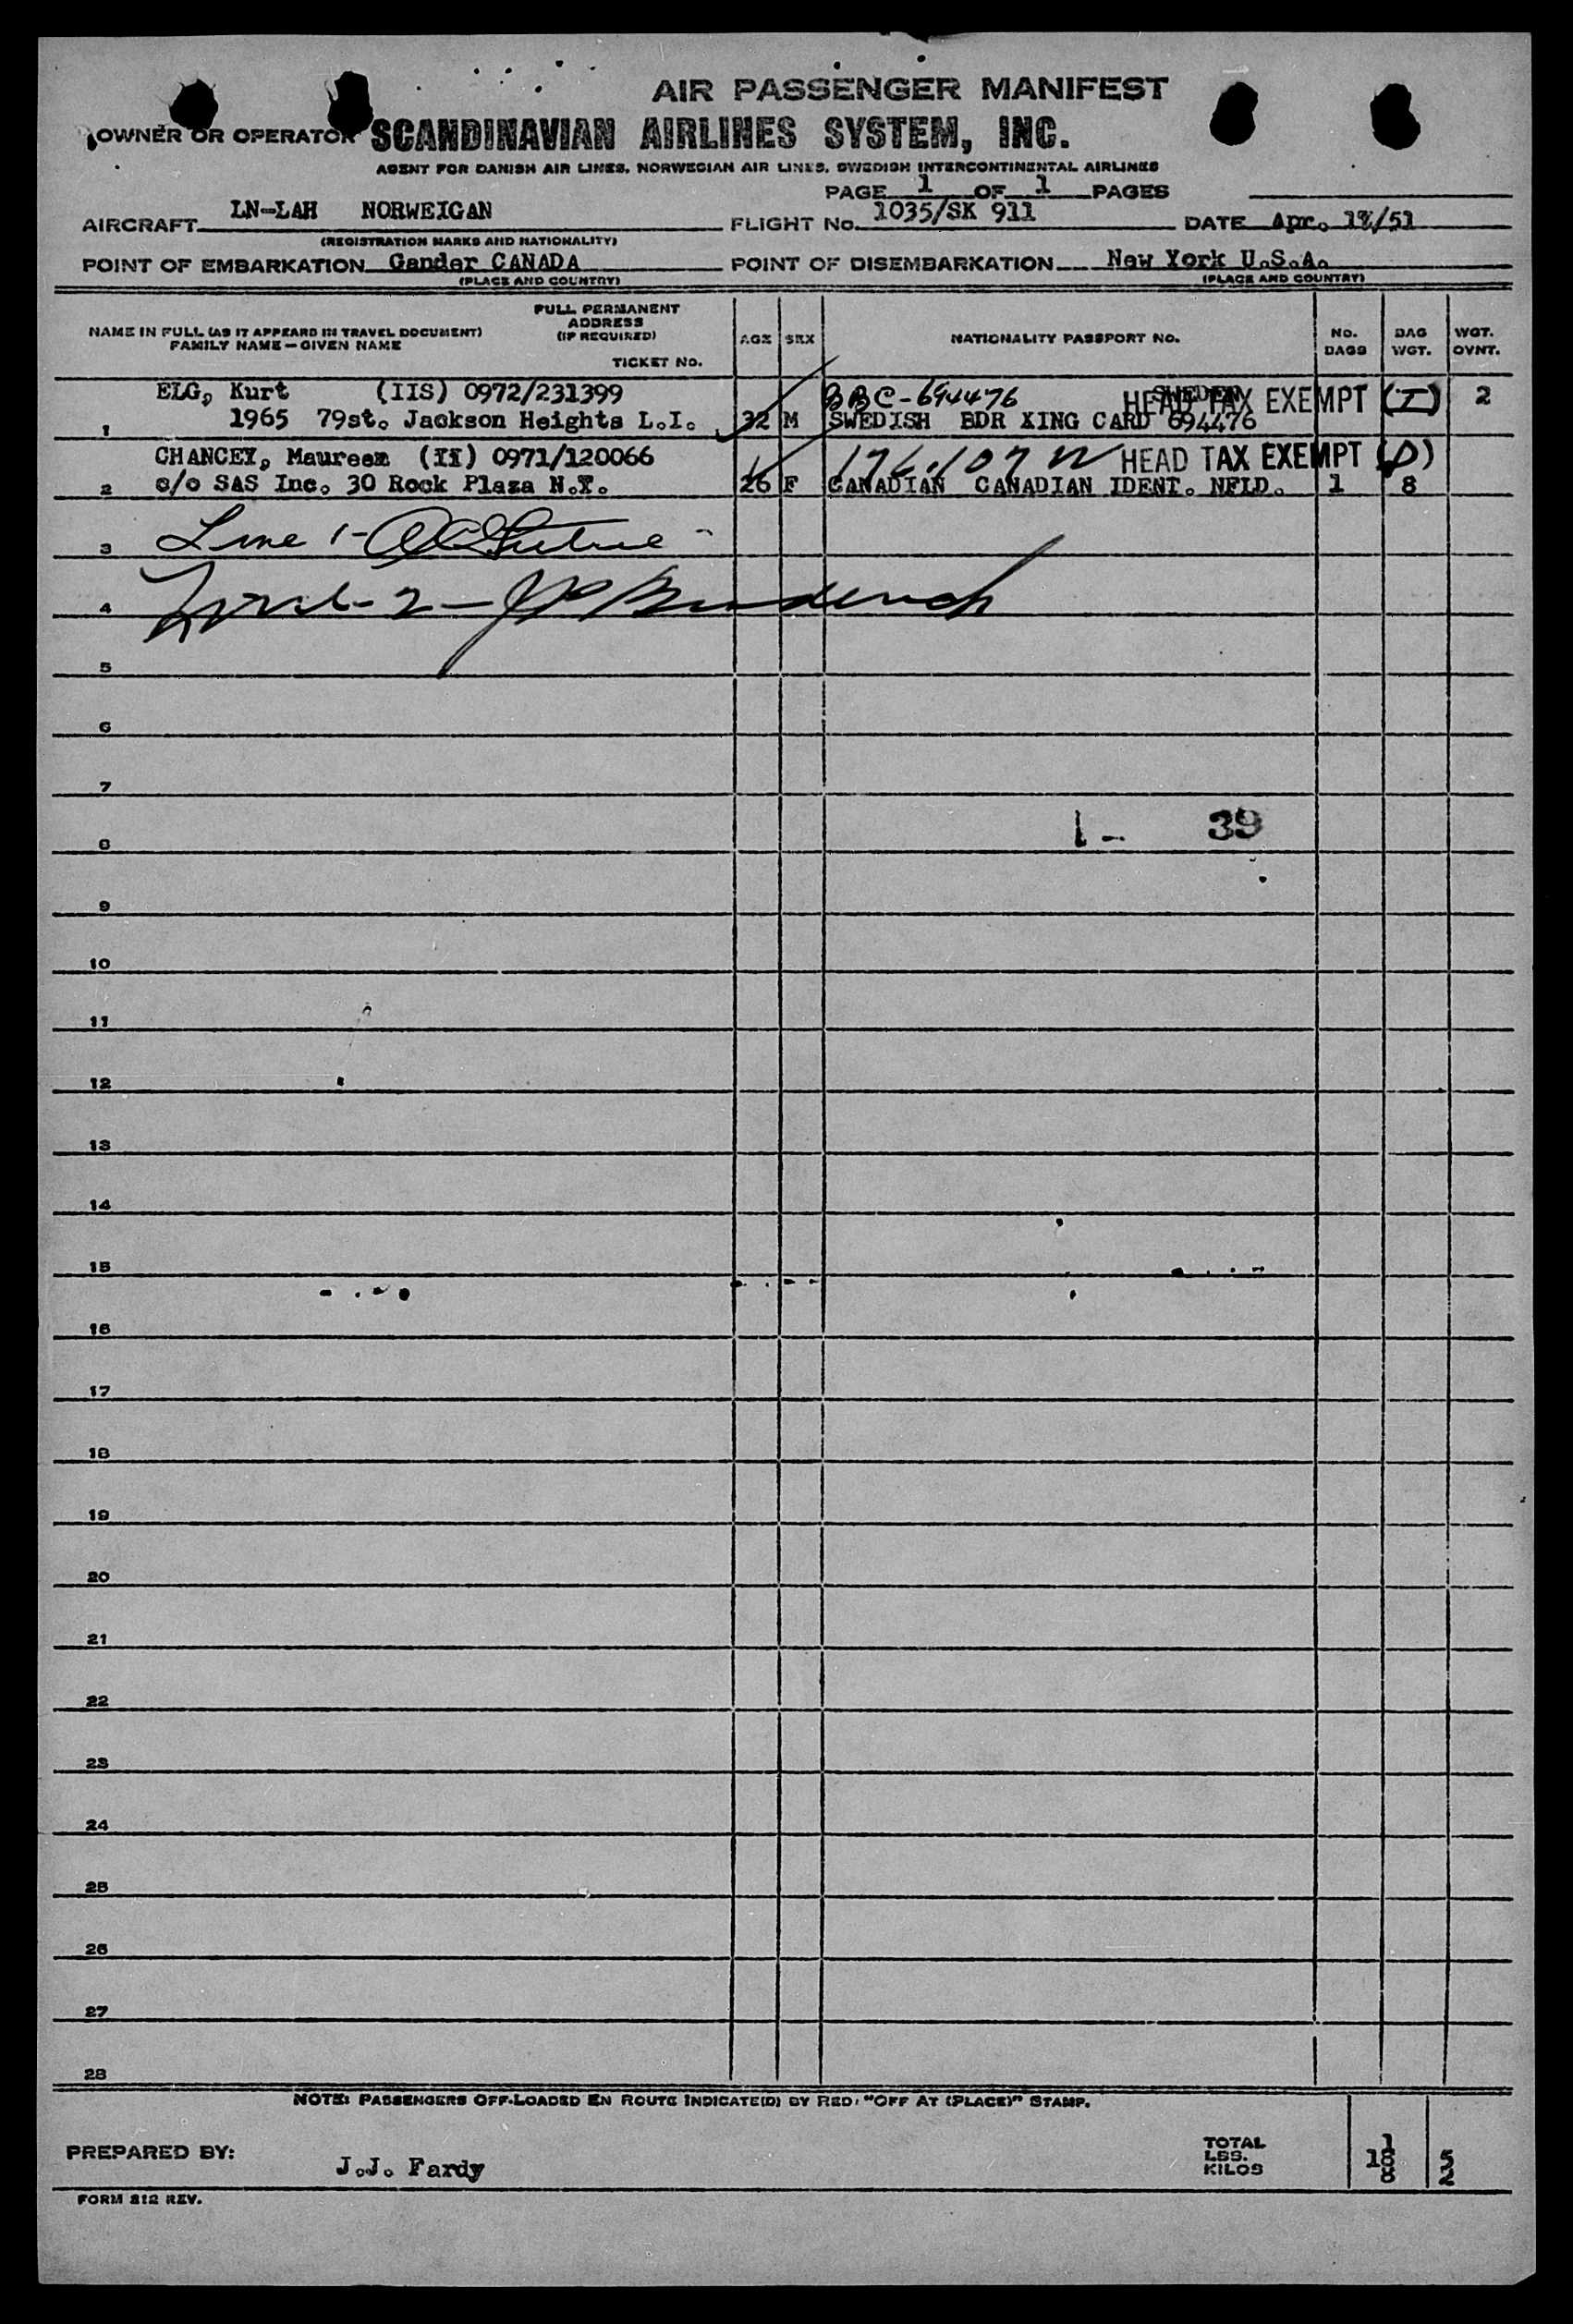 AIR PASSENGER MANIFEST
OWNER OR OPERATOR SCANDINAVIAN AIRLINES SYSTEM, INC.
AGENT FOR DANISH AIR LINES, NORWEGIAN AIR LINES, SWEDISH INTERCONTINENTAL AIRLINES
PAGE 1 OF 1 PAGES
AIRCRAFT LN-LAH NORWEIGAN FLIGHT No. 1035/SK 911 DATE Apr. /51
(REGISTRATION MARKS AND NATIONALITY)
POINT OF EMBARKATION Gander CANADA POINT OF DISEMBARKATION New York U.S.A.
(PLACE AND COUNTRY) (PLACE AND COUNTRY)
NAME IN FULL (AS IT APPEARD IN TRAVEL DOCUMENT) FAMILY NAME — GIVEN NAME FULL PERMANENT ADDRESS (IF REQUIRED) TICKET No. AGE SEX NATIONALITY PASSPORT NO. NO. BAGS BAG WGT. WGT. OVNT.
ELG, Kurt (IIS) 0972/231399 BBC-694476 SWEDEN HEAD TAX EXEMPT (I) 2
1 1965 79st. Jackson Heights L.I. 32 M SWEDISH BDR XING CARD 694476
CHANCEY, Maureen (II) 0971/120066 HEAD TAX EXEMPT
2 c/o SAS Inc. 30 Rock Plaza N.Y. 26 F CANADIAN CANADIAN IDENT. NFLD. 1 8
3 Line 1-
4 2 -
5
6
7
8 1 - 39
9
10
11
12
13
14
15
16
17
18
19
20
21
22
23
24
25
26
27
28
NOTE: PASSENGERS OFF-LOADED EN ROUTE INDICATE(D) BY RED: "OFF AT (PLACE)" STAMP.
PREPARED BY: J.J. Fardy
TOTAL 1
LBS. 18 5
KILOS 8 2
FORM 212 REV.